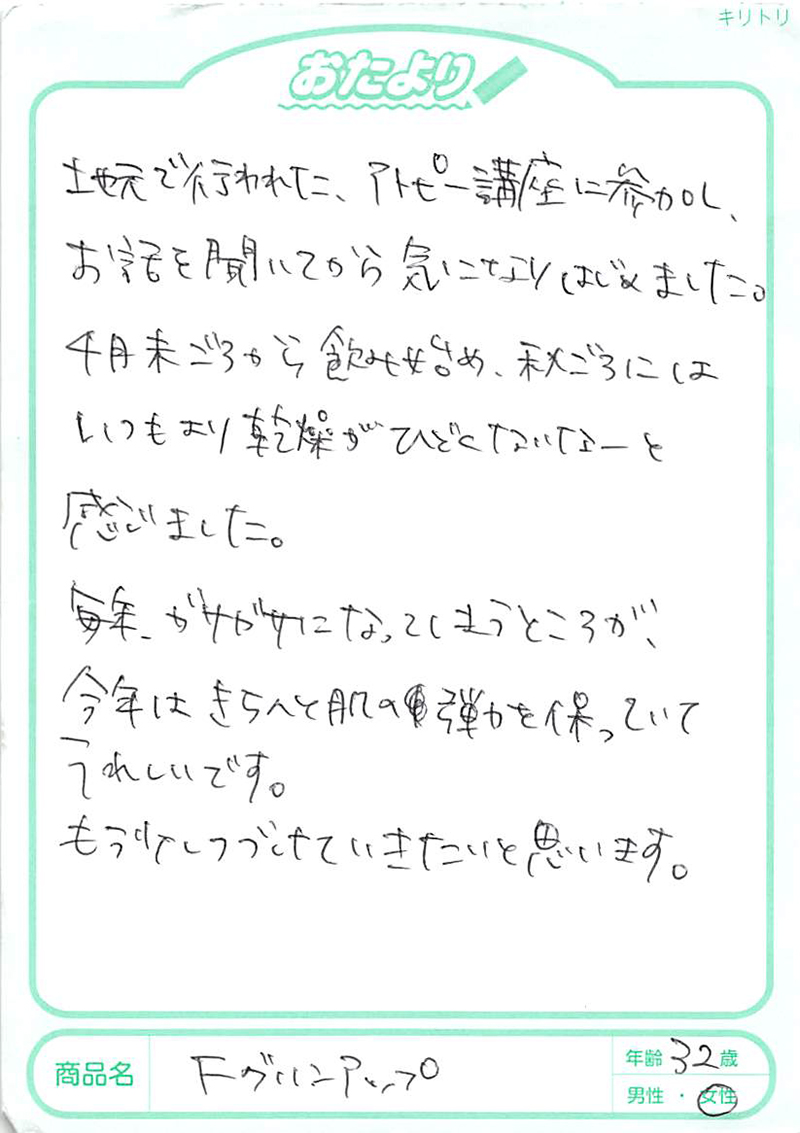 キリトリ
おたより
地元で行われた、アトピー講座に参加し、
お話を聞いてから気になりはじめました。
4月末ごろから飲み始め、秋ごろには
いつもより乾燥がひどくないなーと
感じました。
毎年、ガサガサになってしまうところが、
今年はきちんと肌の弾力を保っていて
うれしいです。
もう少しつづけていきたいと思います。
商品名 Fグリンアップ
年齢 32歳
男性・女性